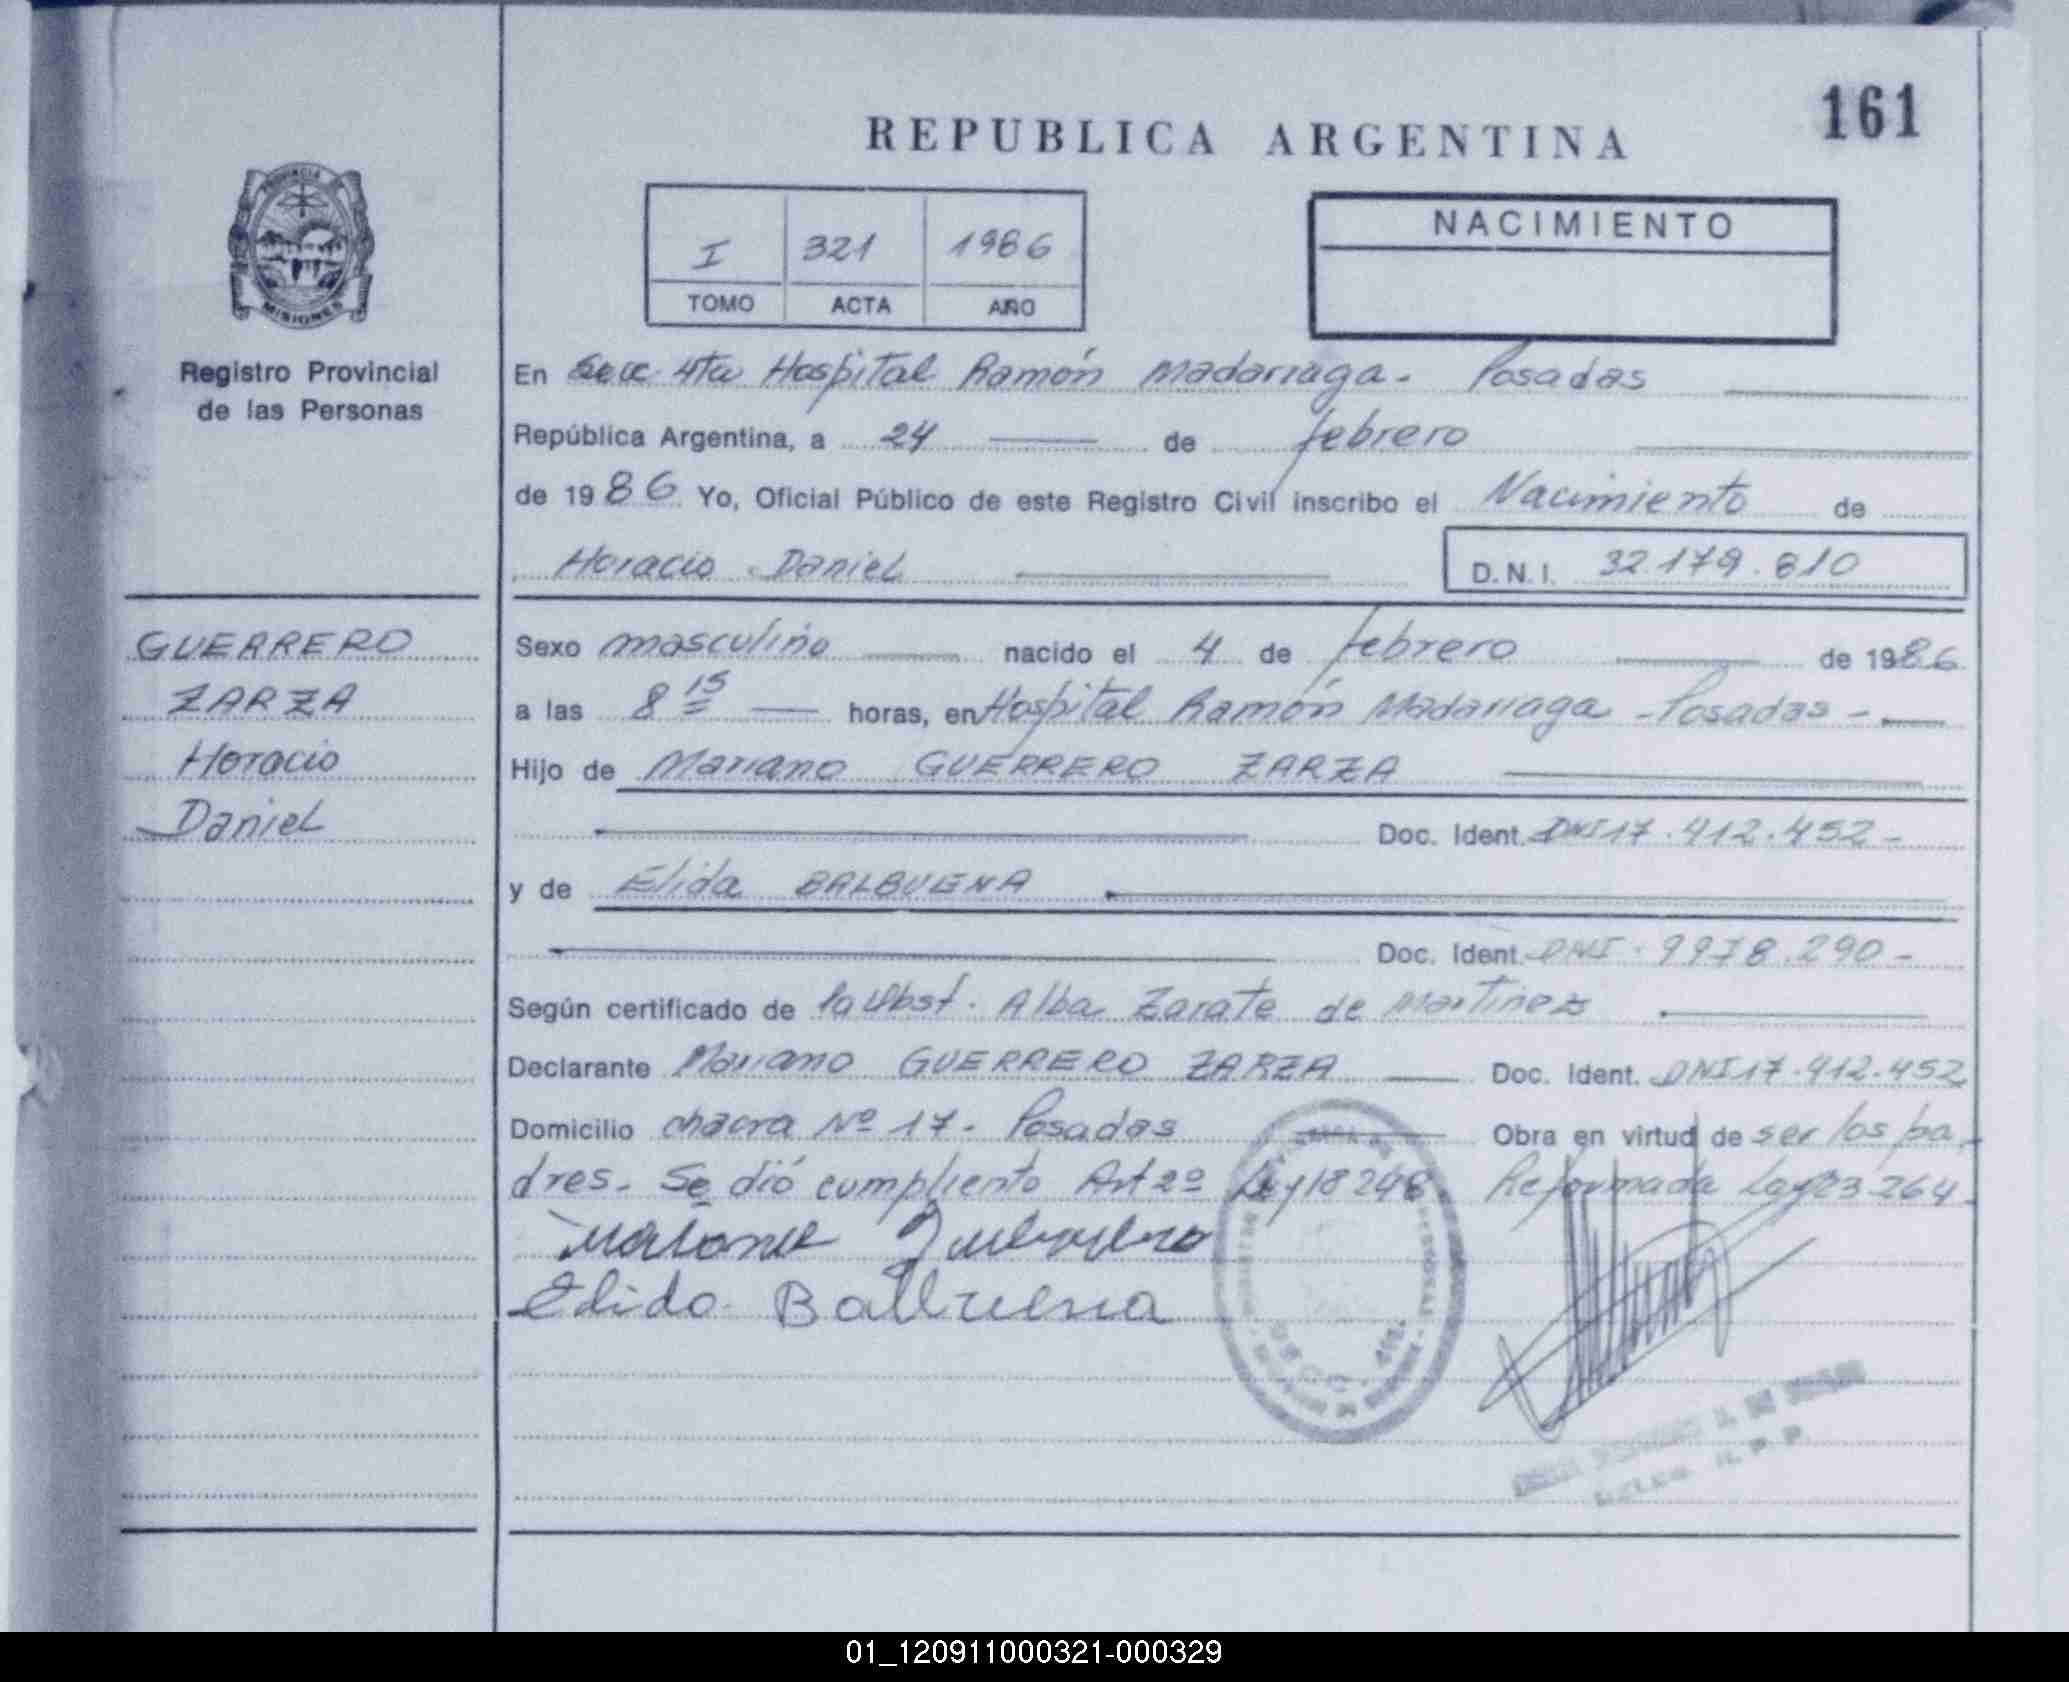 161
REPUBLICA ARGENTINA
I 321 1986
TOMO ACTA AÑO
NACIMIENTO
PROVINCIA DE
MISIONES
Registro Provincial
de las Personas
En Secc 4ta Hospital Ramón Madariaga - Posadas
República Argentina, a 24 de febrero
de 1986 Yo, Oficial Público de este Registro Civil inscribo el Nacimiento de
Horacio Daniel D.N.I. 32.179.810
GUERRERO
ZARZA
Horacio
Daniel
Sexo masculino nacido el 4 de febrero de 1986
a las 8 15 horas, en Hospital Ramón Madariaga - Posadas -
Hijo de Mariano GUERRERO ZARZA
Doc. Ident. DNI 17.412.452 -
y de Elida BALBUENA
Doc. Ident. DNI. 9978.290 -
Según certificado de la Obst. Alba Zarate de Martinez
Declarante Mariano GUERRERO ZARZA Doc. Ident. DNI 17.412.452
Domicilio chacra Nº 17 - Posadas Obra en virtud de ser los pa-
dres - Se dió cumpliento Art 2º Ley 18248 Reformada Ley 23264 -
Elida Balbuena
01_120911000321-000329